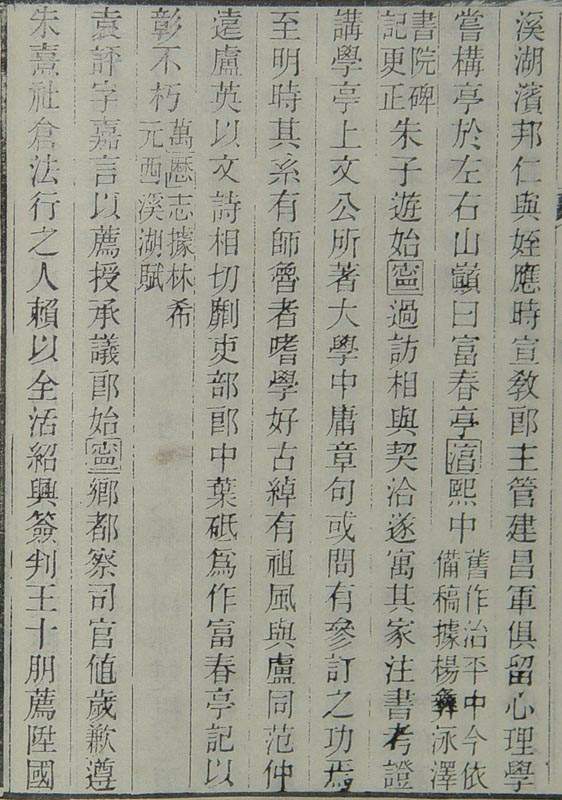 溪湖濱邦仁與姪應時宣敎郎主管建昌軍俱留心理學
嘗構亭於左右山巔曰富春亭淳熙中舊作治平中今依備稿據楊彝泳澤
書院碑記更正朱子遊始寧過訪相與契洽遂寓其家注書考證
講學亭上文公所著大學中庸章句或問有參訂之功焉
至明時其系有師魯者嗜學好古綽有祖風與盧同范仲
遠盧英以文詩相切劘吏部郎中葉砥爲作富春亭記以
彰不朽萬曆志據林希元西溪湖賦
袁評字嘉言以薦授承議郎始寧鄉都察司官値歲歉遵
朱熹社倉法行之人賴以全活紹興簽判王十朋薦陞國